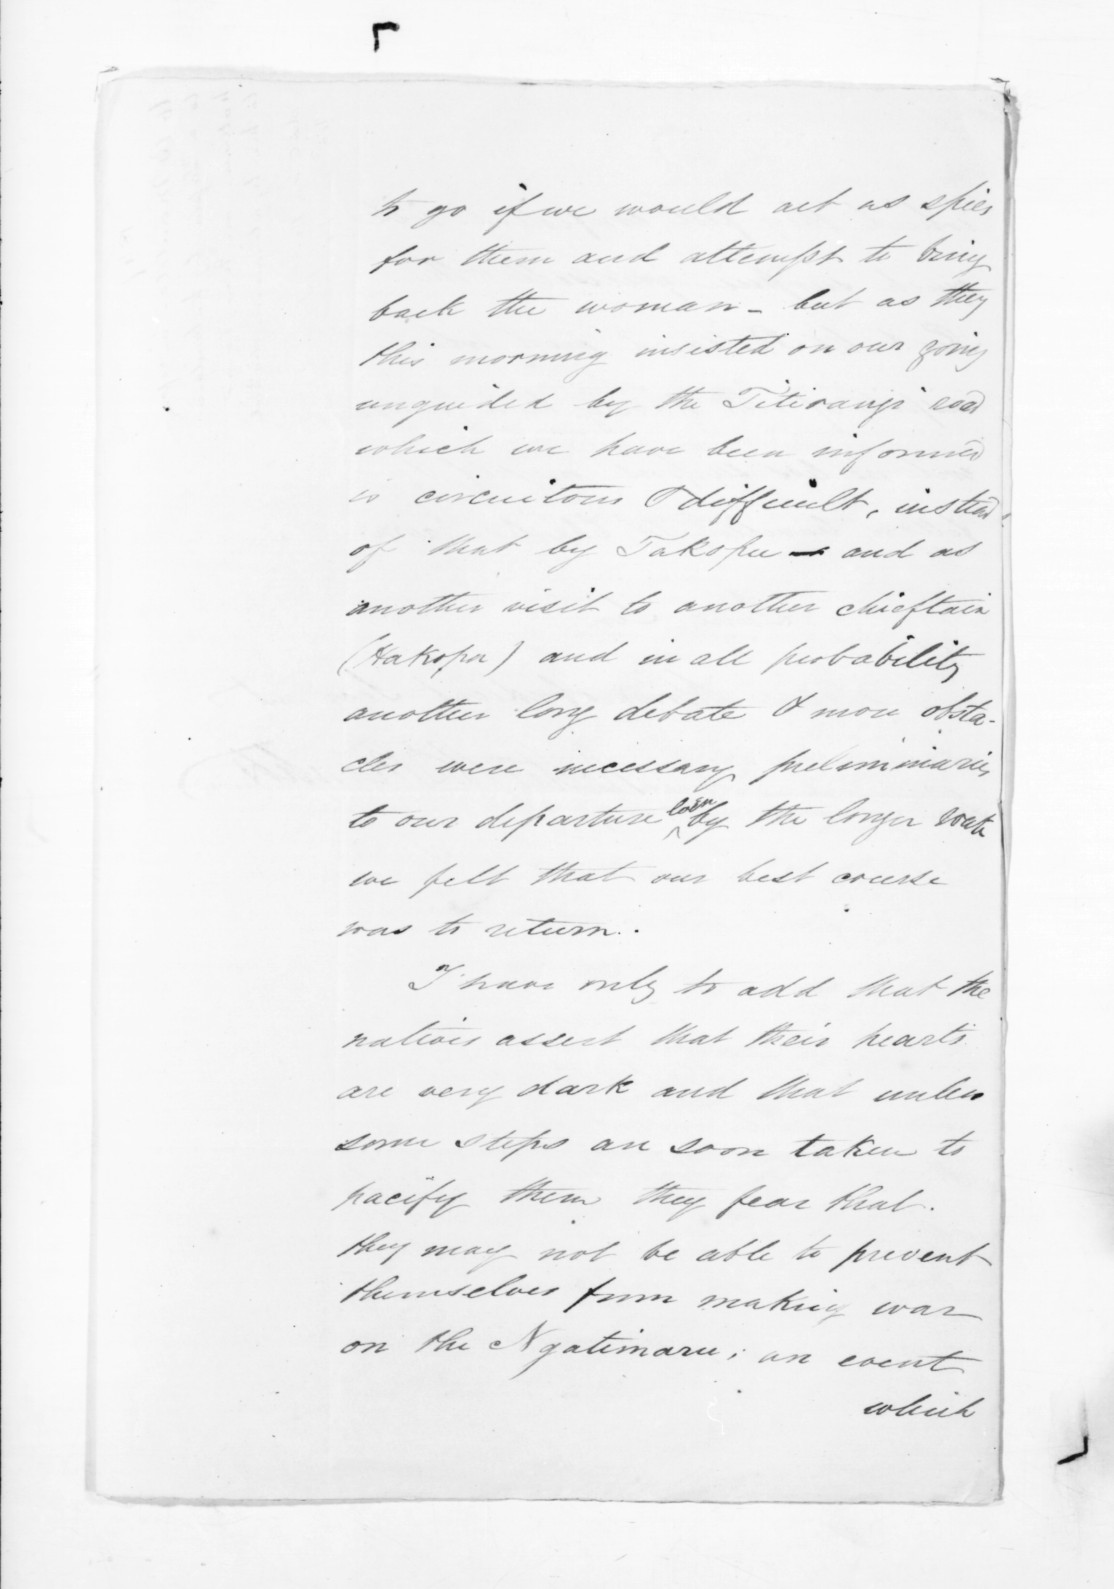 to go if we would act as spies
for them and attempt to bring
back the woman - but as they
this morning insisted on our going
unguided by the Titirangi road
which we have been informed
is circuitous & difficult, instead
of that by Takopu - and as
another visit to another chieftain
(Hakopa) and in all probability
another long debate & more obsta-
cles were necessary preliminaries
to our departure even by the longer route
we felt that our best course
was to return.
I have only to add that the
natives assert that their hearts
are very dark and that unless
some steps are soon taken to
pacify them they fear that
they may not be able to prevent
themselves from making war
on the Ngatimaru; an event
which